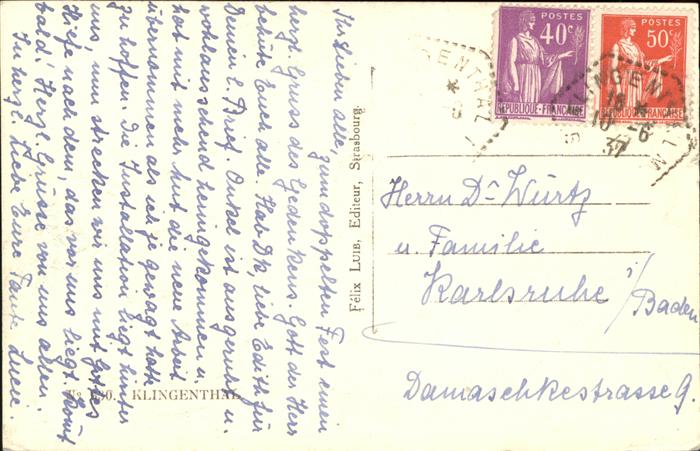 Ihr Lieben alle,
zum doppelten Fest einen
herzl. Gruss des Gedenkens. Gott der Herr
behüte Euch alle. Hab Dk, liebe Edith für
Deinen l. Brief. Onkel ist ausgeruht u.
wohlaussehend heimgekommen u.
hat mit mehr Mut die neue Arbeit
übernommen als ich je gewagt hätte
zu hoffen. Die Installation liegt hinter
uns, nun strecken wir uns mit Gottes
Hilfe nach dem, das vor uns liegt. Kommt
bald! Herzl. Grüsse von uns allen.
In herzl. Liebe Eure Tante Lucie.
KLINGENTHAL
Félix LUIB, Editeur, Strasbourg.
POSTES
40c
REPUBLIQUE-FRANÇAISE
POSTES
50c
REPUBLIQUE-FRANÇAISE
KLINGENTHAL
18 *
10-6
37
Herrn Dr Würtz
u. Familie
Karlsruhe i/Baden
Damaschkestrasse 9.